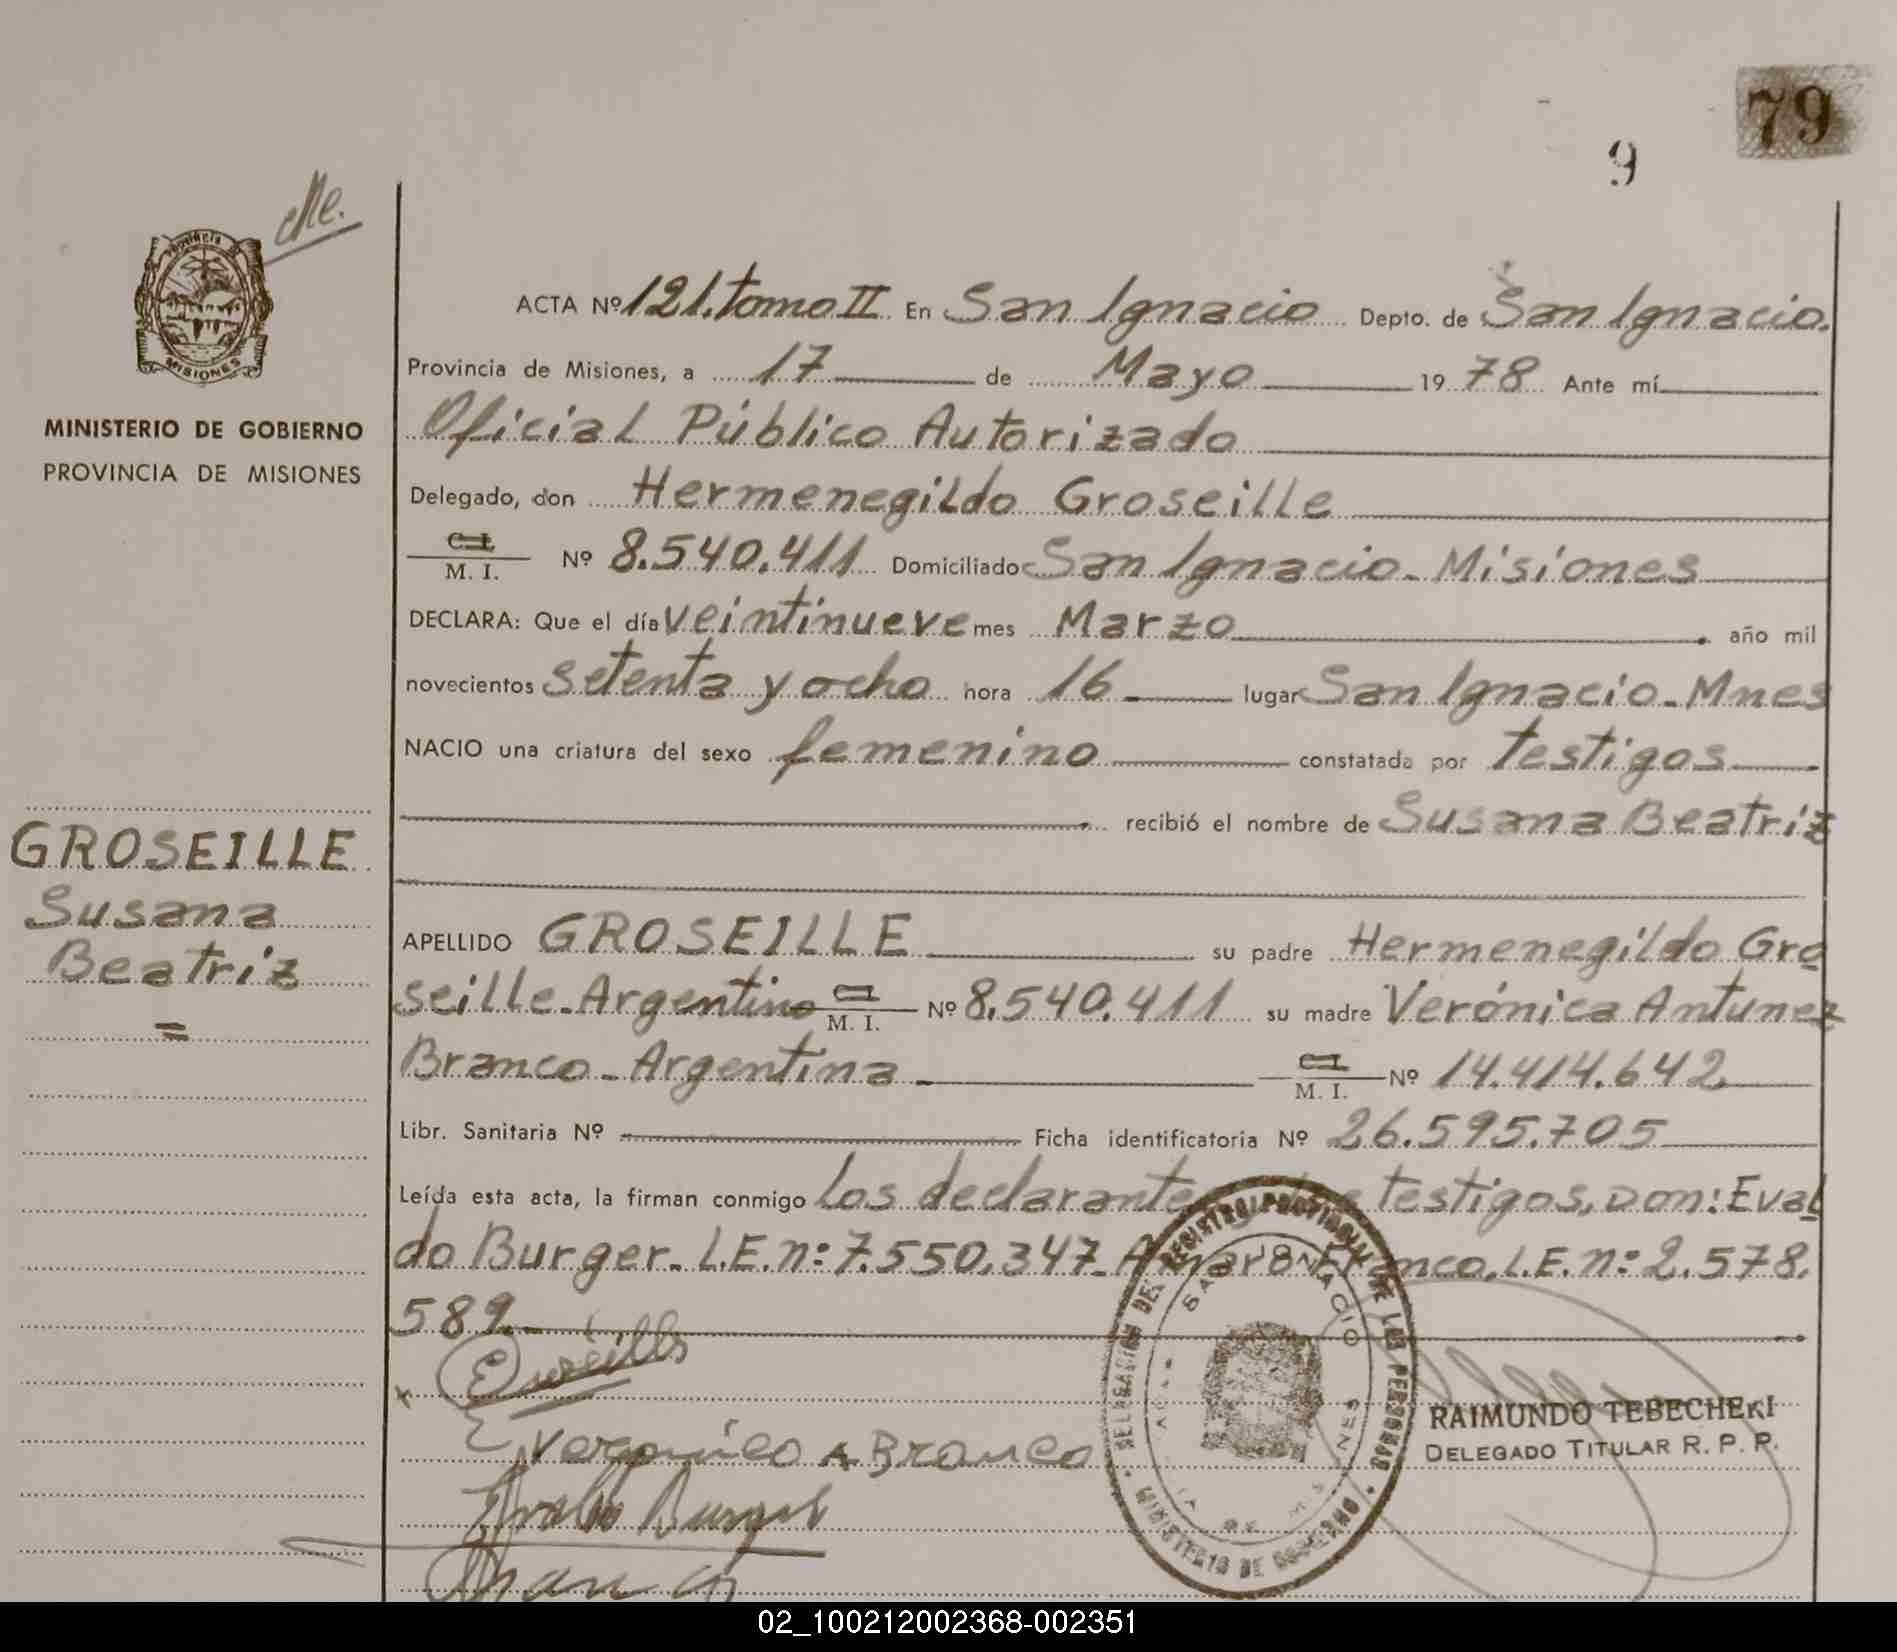 79
9
Provincia de
MISIONES
MINISTERIO DE GOBIERNO
PROVINCIA DE MISIONES
GROSEILLE
Susana
Beatriz
=
ACTA Nº 121. tomo II En San Ignacio Depto. de San Ignacio.
Provincia de Misiones, a 17 de Mayo 1978 Ante mí
Oficial Público Autorizado
Delegado, don Hermenegildo Groseille
C. I.
M. I. Nº 8.540.411 Domiciliado San Ignacio - Misiones
DECLARA: Que el día veintinueve mes Marzo año mil
novecientos setenta y ocho hora 16 lugar San Ignacio - Mnes
NACIO una criatura del sexo femenino constatada por testigos
recibió el nombre de Susana Beatriz
APELLIDO GROSEILLE su padre Hermenegildo Gro
seille - Argentino C. I. M. I. Nº 8.540.411 su madre Verónica Antunez
Branco - Argentina C. I. M. I. Nº 14.414.642
Libr. Sanitaria Nº Ficha identificatoria Nº 26.595.705
Leída esta acta, la firman conmigo los declarantes testigos, Don: Eval
do Burger - L.E. n: 7.550.347 - L.E. n: 2.578.
589
Veronica A Branco
Evaldo Burger
DELEGACION DEL REGISTRO PROVINCIAL DE LAS PERSONAS
SAN IGNACIO
MISIONES
MINISTERIO DE GOBIERNO
RAIMUNDO TEBECHERI
DELEGADO TITULAR R. P. P.
02_100212002368-002351